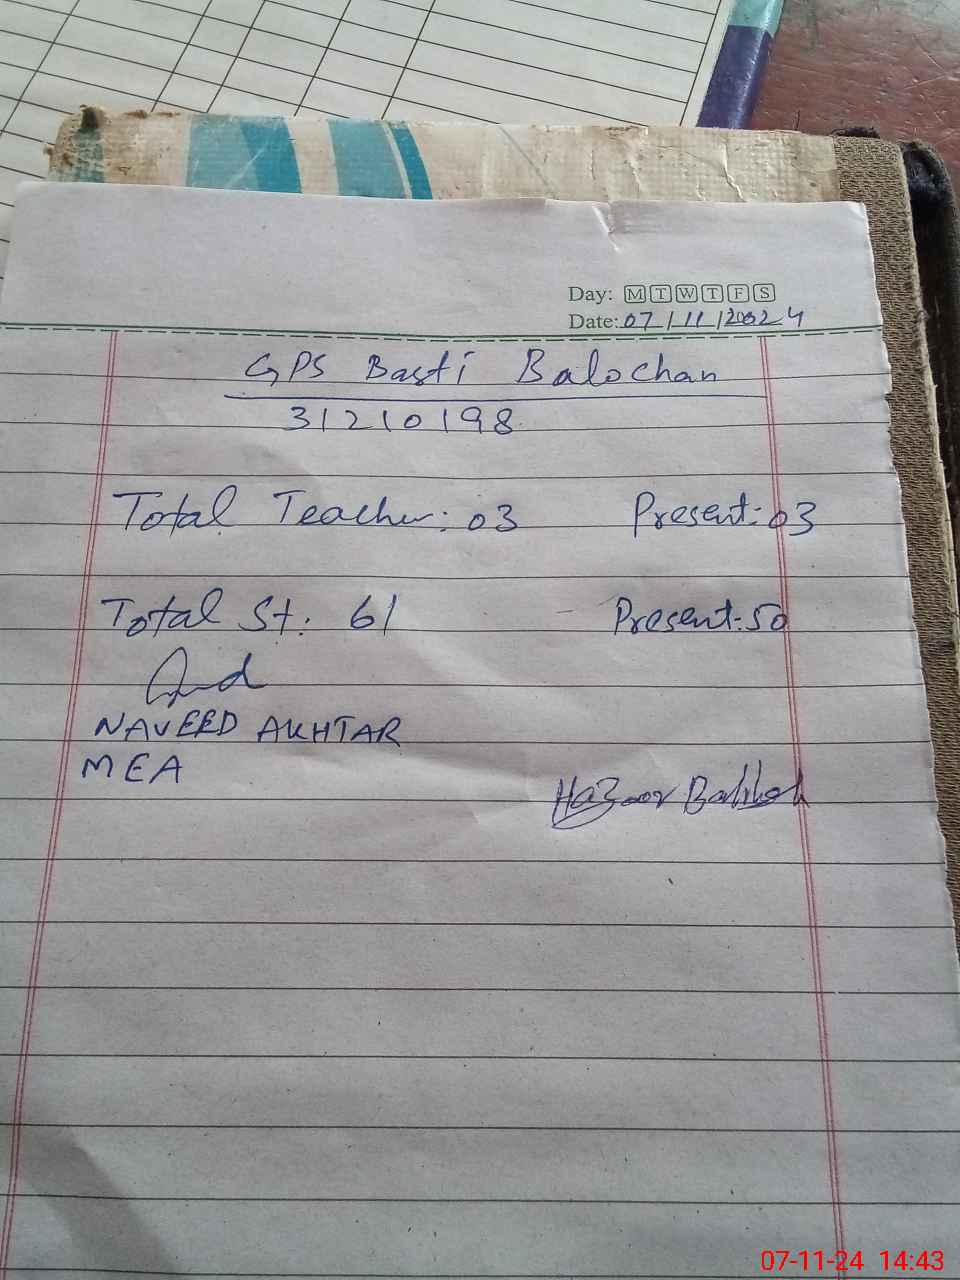 Day: M T W T F S
Date: 07/11/2024
GPS Basti Balochan
31210198
Total Teacher: 03 Present: 03
Total St: 61 Present: 50
NAVEED AKHTAR
MEA
Hazoor Bakhsh
07-11-24 14:43